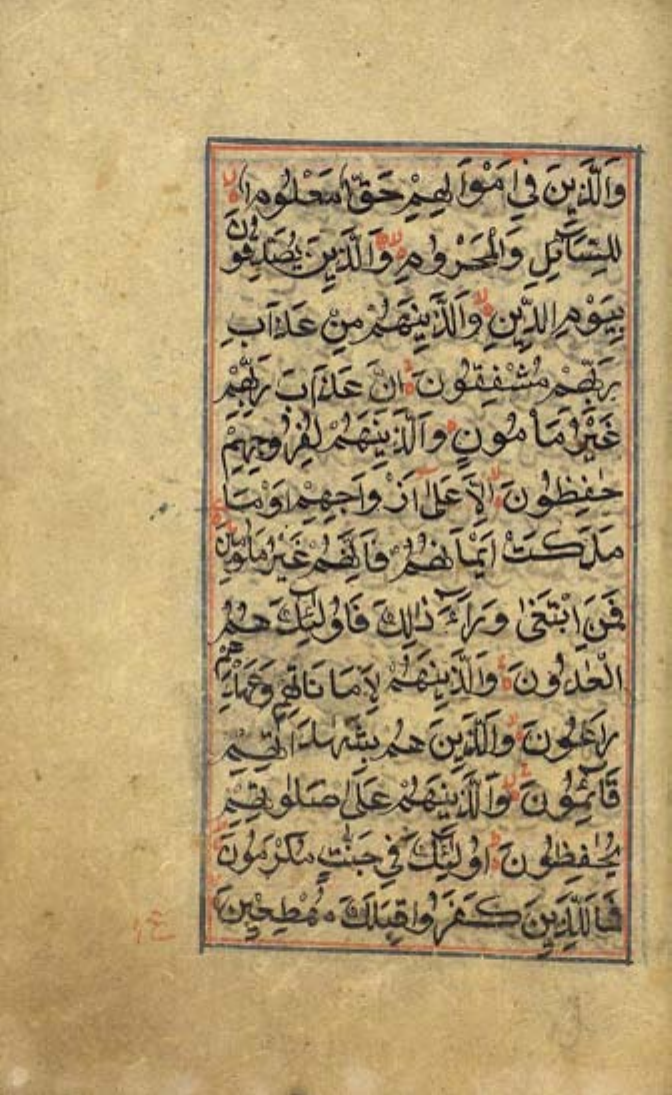 وَالَّذِينَ فِي أَمْوَالِهِمْ حَقٌّ مَعْلُومٌ
لِلسَّائِلِ وَالْمَحْرُومِ وَالَّذِينَ يُصَدِّقُونَ
بِيَوْمِ الدِّينِ وَالَّذِينَهُمْ مِنْ عَذَابِ
رَبِّهِمْ مُشْفِقُونَ اِنَّ عَذَابَ رَبِّهِمْ
غَيْرُ مَأْمُونٍ وَالَّذِينَهُمْ لِفُرُوجِهِمْ
حٰفِظُونَ اِلَّا عَلٰى اَزْوَاجِهِمْ اَوْ مَا
مَلَكَتْ اَيْمَانُهُمْ فَاِنَّهُمْ غَيْرُ مَلُومِينَ
فَمَنِ ابْتَغٰى وَرَاءَ ذٰلِكَ فَاُولٰئِكَ هُمُ
الْعٰدُونَ وَالَّذِينَهُمْ لِاَمَانَاتِهِمْ وَعَهْدِهِمْ
رَاعُونَ وَالَّذِينَ هُمْ بِشَهَادَاتِهِمْ
قَائِمُونَ وَالَّذِينَهُمْ عَلٰى صَلٰوتِهِمْ
يُحٰفِظُونَ اُولٰئِكَ فِي جَنّٰتٍ مُكْرَمُونَ
فَمَالِ الَّذِينَ كَفَرُوا قِبَلَكَ مُهْطِعِينَ